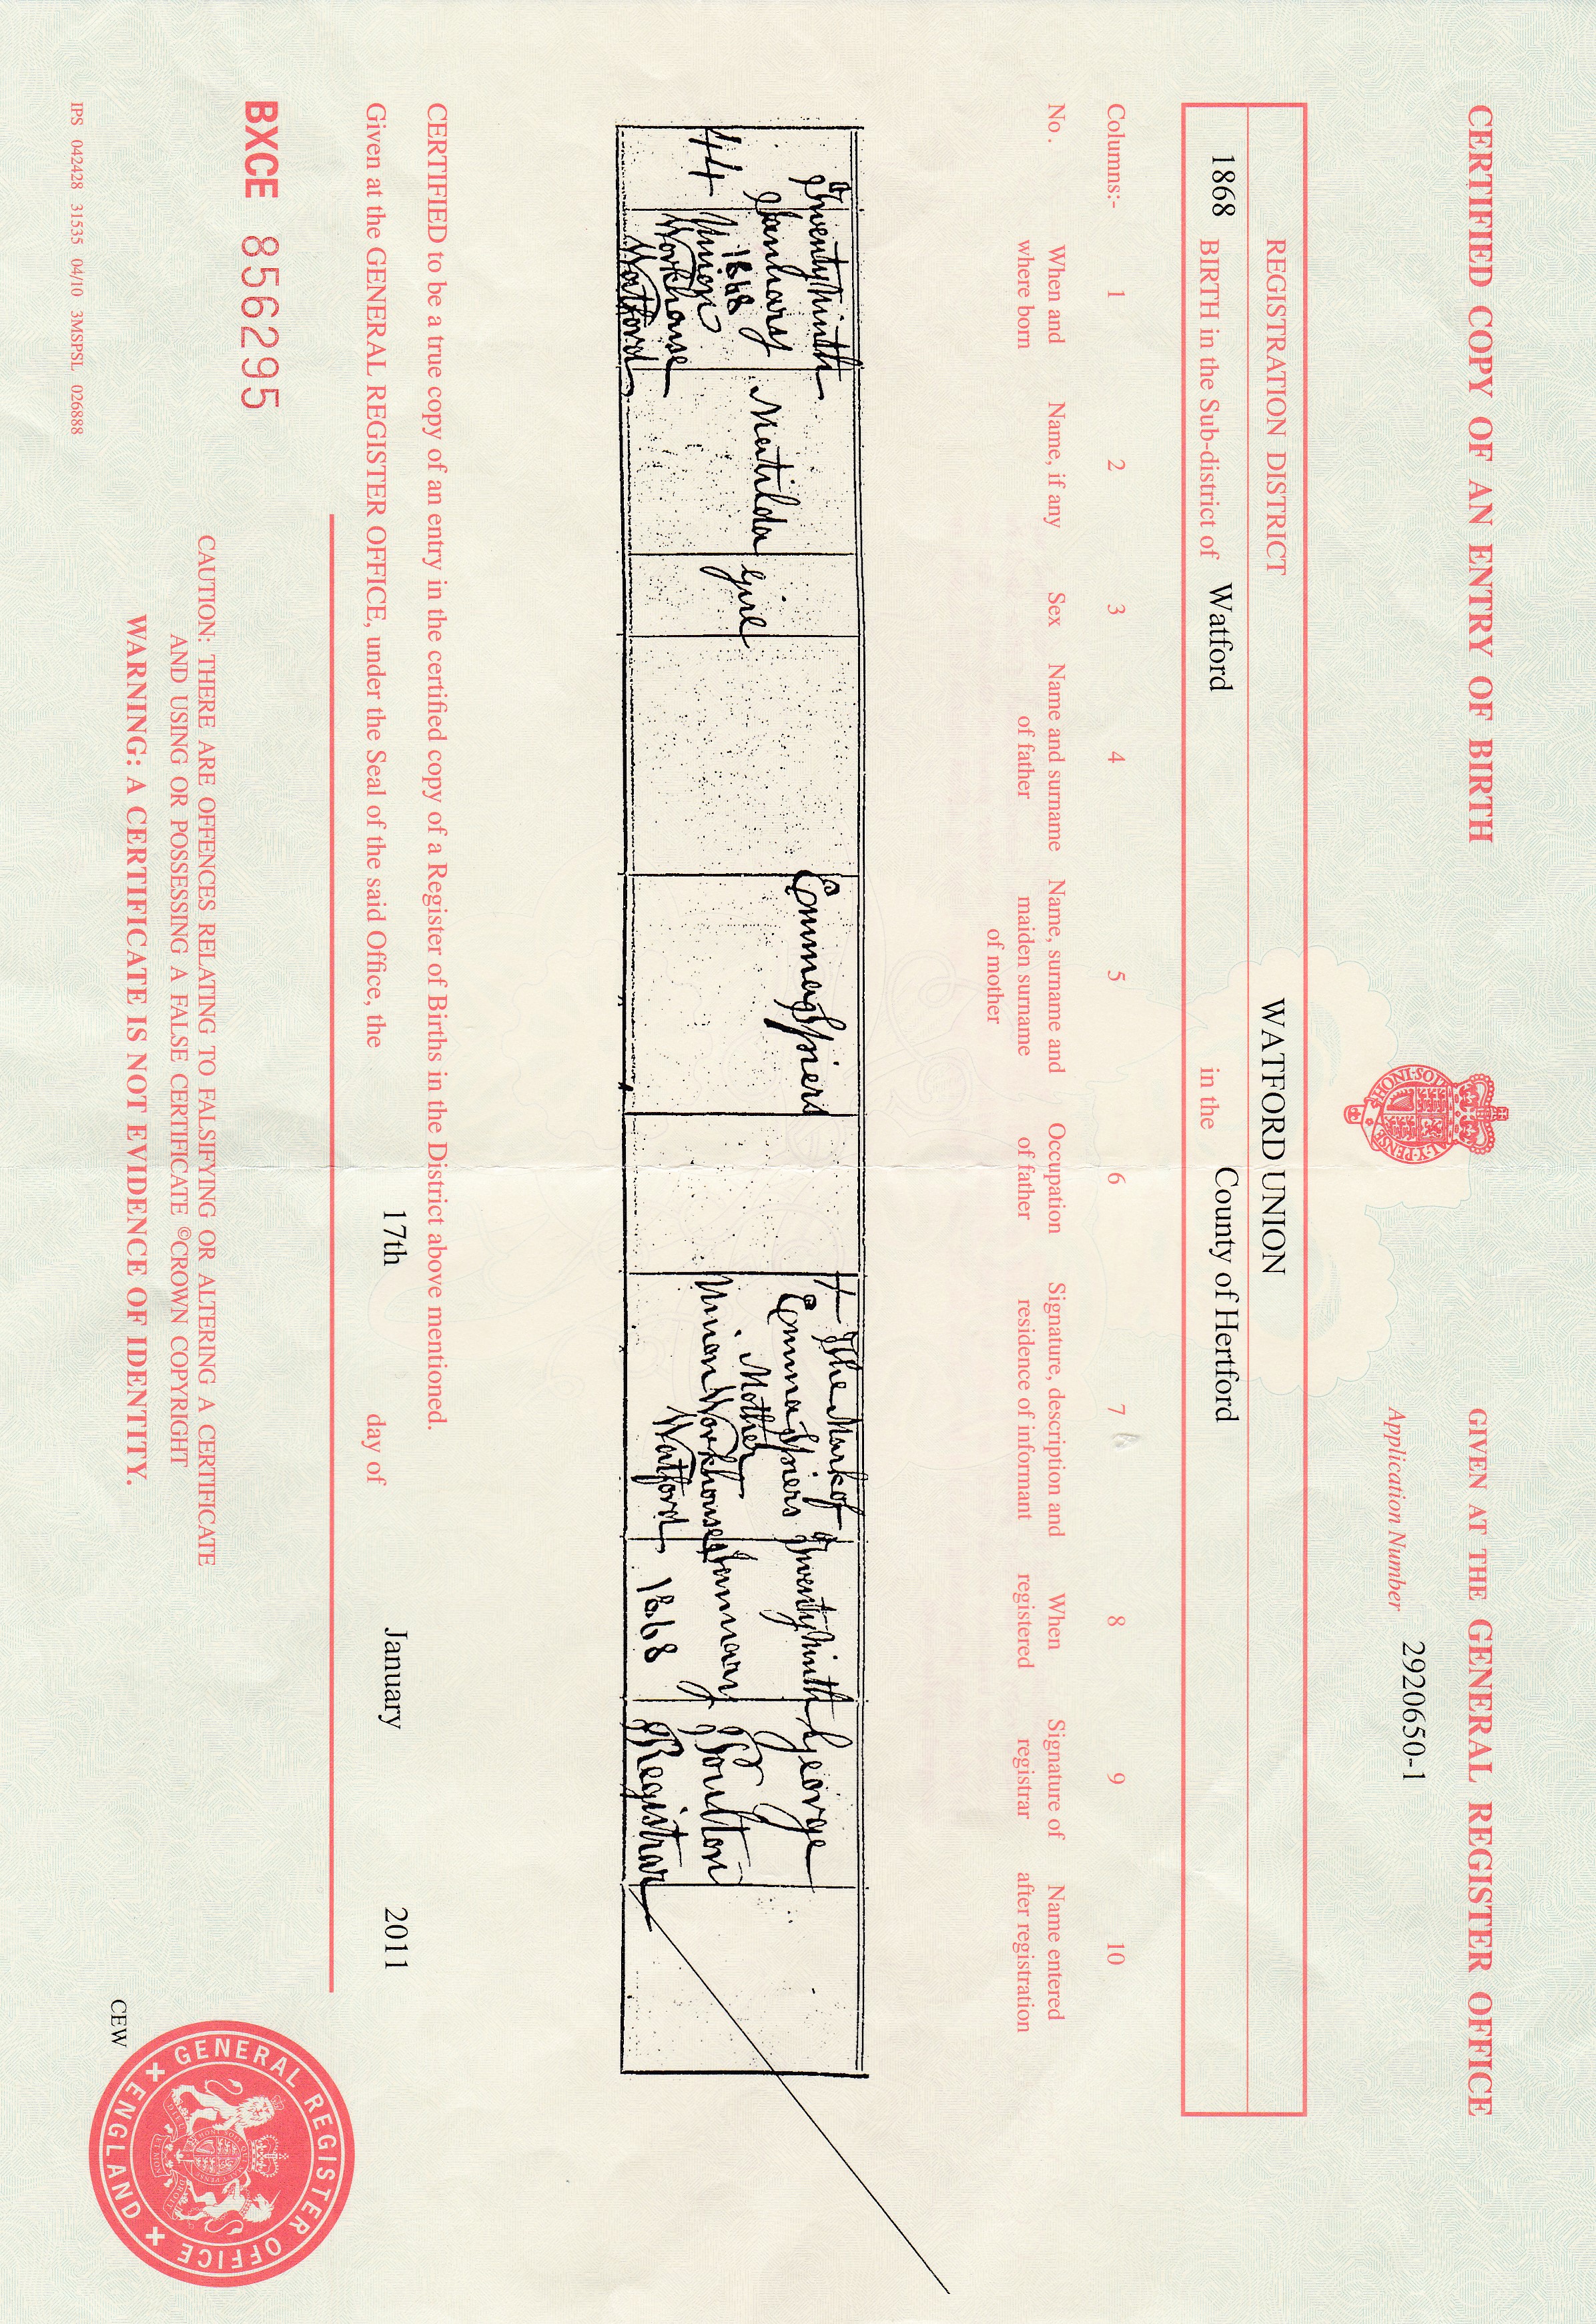 CERTIFIED COPY OF AN ENTRY OF BIRTH
GIVEN AT THE GENERAL REGISTER OFFICE
Application Number 2920650-1
HONI·SOIT
AL·Y·PENSE
REGISTRATION DISTRICT WATFORD UNION
1868 BIRTH in the Sub-district of Watford in the County of Hertford
Columns:- 1 2 3 4 5 6 7 8 9 10
No. When and where born
Name, if any
Sex
Name and surname of father
Name, surname and maiden surname of mother
Occupation of father
Signature, description and residence of informant
When registered
Signature of registrar
Name entered after registration
44
Twenty Ninth
January
1868
Union
Workhouse
Watford
Matilda
Girl
Emma Spiers
+ The Mark of
Emma Spiers
Mother
Union Workhouse
Watford
Twenty Ninth
January
1868
George
Poulton
Registrar
CERTIFIED to be a true copy of an entry in the certified copy of a Register of Births in the District above mentioned.
Given at the GENERAL REGISTER OFFICE, under the Seal of the said Office, the 17th day of January 2011
BXCE 856295
CAUTION: THERE ARE OFFENCES RELATING TO FALSIFYING OR ALTERING A CERTIFICATE
AND USING OR POSSESSING A FALSE CERTIFICATE ©CROWN COPYRIGHT
WARNING: A CERTIFICATE IS NOT EVIDENCE OF IDENTITY.
CEW
GENERAL REGISTER OFFICE
ENGLAND
IPS 042428 31535 04/10 3MSPSL 026888